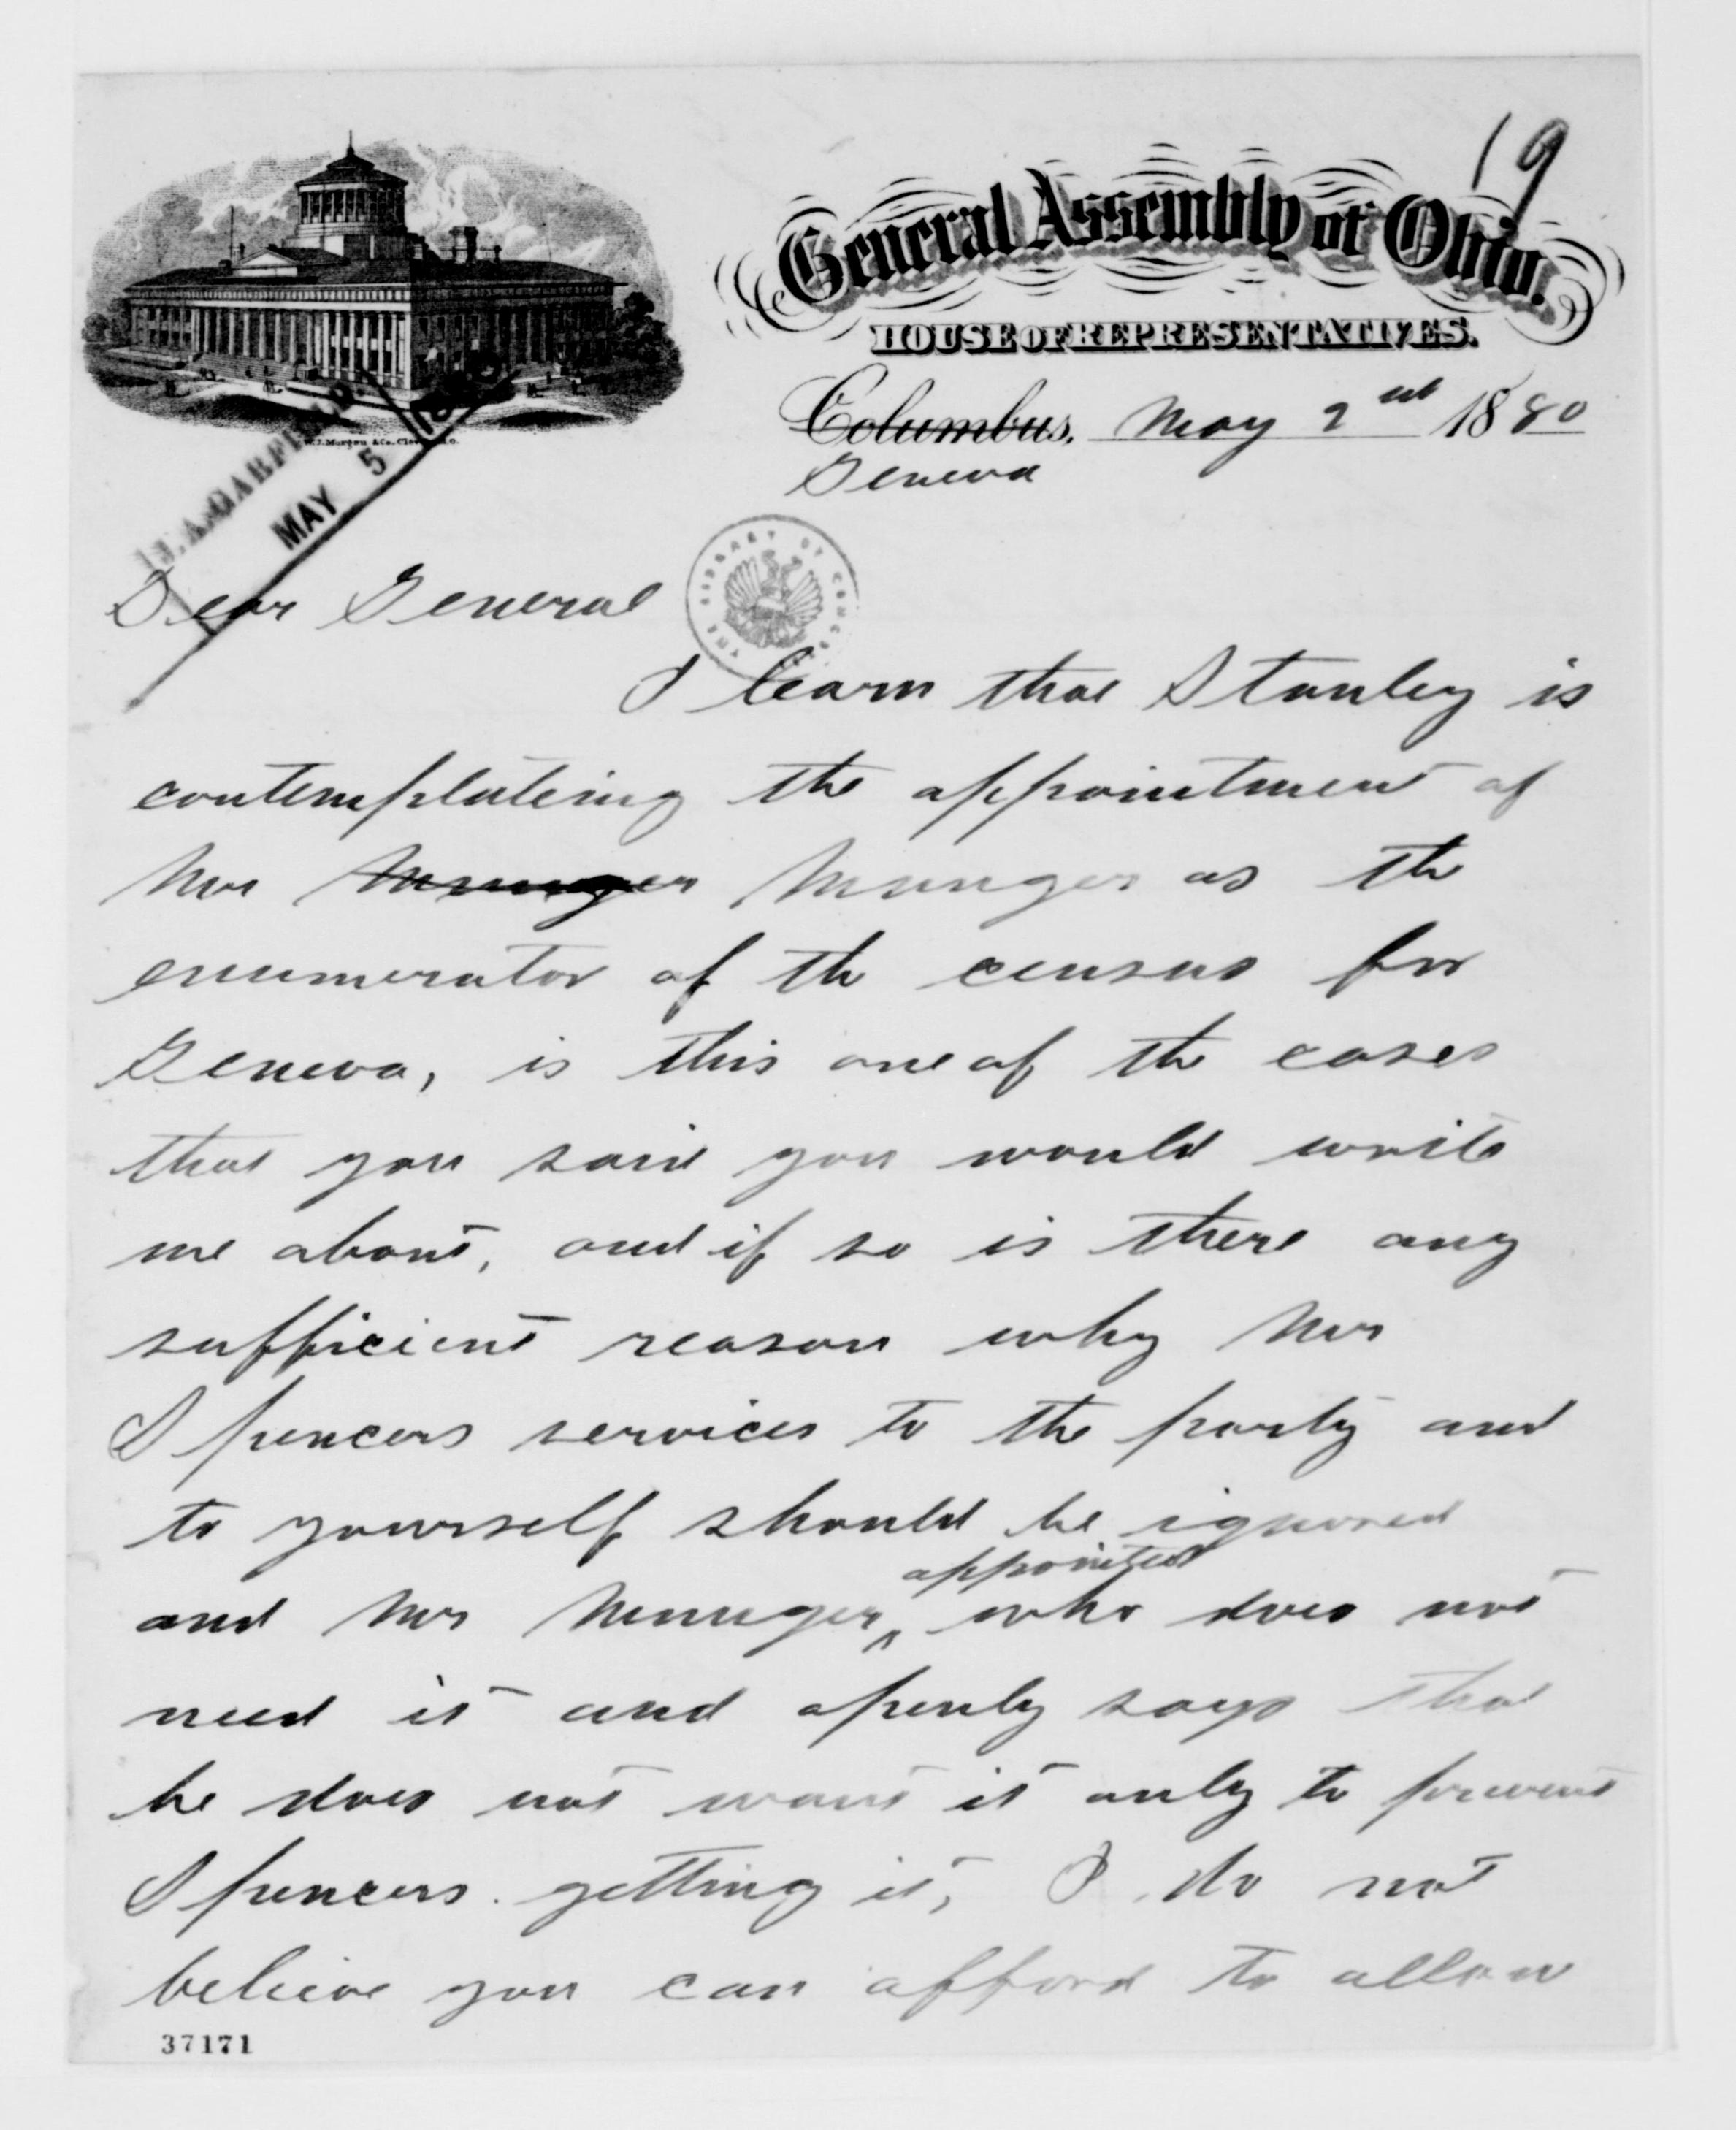 19
General Assembly of Ohio.
HOUSE OF REPRESENTATIVES.
W.J. Morgan & Co. Clev. O.
J. A. GARFIELD.
MAY 5 1880
Columbus, May 2nd 1880
Geneva
THE LIBRARY OF CONGRESS
Dear General
I learn that Stanley is
contemplateing the appointment of
Mr Munger Munger as the
enumerator of the census for
Geneva, is this one of the cases
that you said you would write
me about, and if so is there any
sufficient reason why Mr
Spencers services to the party and
to yourself should be ignored
appointed
and Mr Munger ^ who does not
need it and openly says that
he does not want it only to prevent
Spencers getting it, I do not
believe you can afford to allow
37171